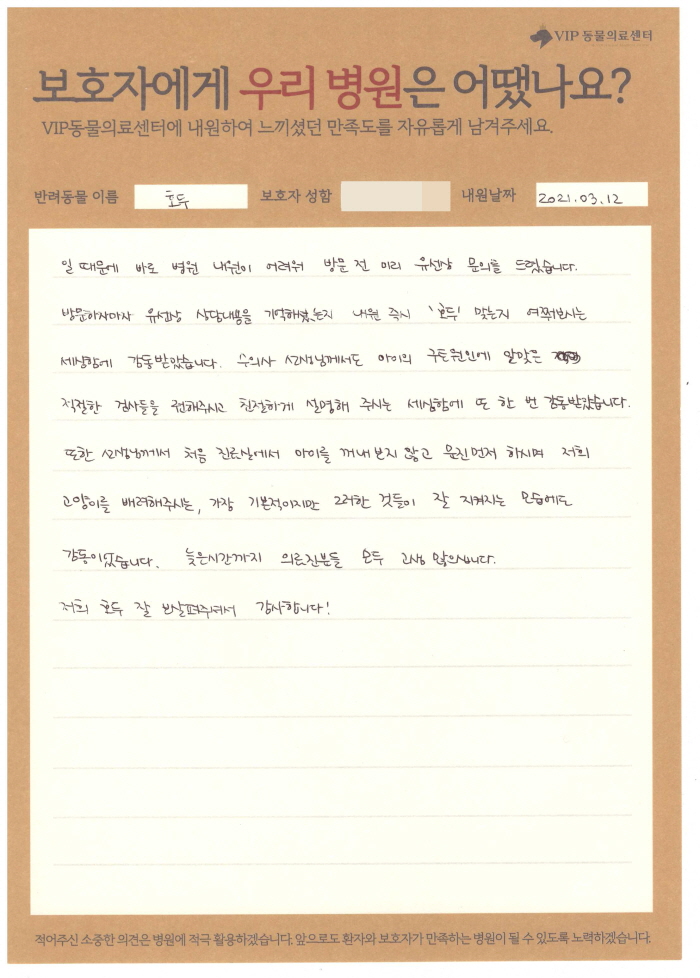 VIP 동물의료센터
보호자에게 우리 병원은 어땠나요?
VIP동물의료센터에 내원하여 느끼셨던 만족도를 자유롭게 남겨주세요.
반려동물 이름 호두 보호자 성함 내원날짜 2021.03.12
일 때문에 바로 병원 내원이 어려워 방문 전 미리 유선상 문의를 드렸습니다.
방문하자마자 유선상 상담내용을 기억해놨는지 내원 즉시 '호두' 맞는지 여쭤보시는
세심함에 감동받았습니다. 수의사 선생님께서도 아이의 구토원인에 알맞은
적절한 검사들을 권해주시고 친절하게 설명해 주시는 세심함에 또 한 번 감동받았습니다.
또한 선생님께서 처음 진료실에서 아이를 꺼내 보지 않고 문진먼저 하시며 저희
고양이를 배려해주시는, 가장 기본적이지만 그러한 것들이 잘 지켜지는 모습에도
감동이었습니다. 늦은시간까지 의료진분들 모두 고생 많으십니다.
저희 호두 잘 보살펴주셔서 감사합니다!
적어주신 소중한 의견은 병원에 적극 활용하겠습니다. 앞으로도 환자와 보호자가 만족하는 병원이 될 수 있도록 노력하겠습니다.